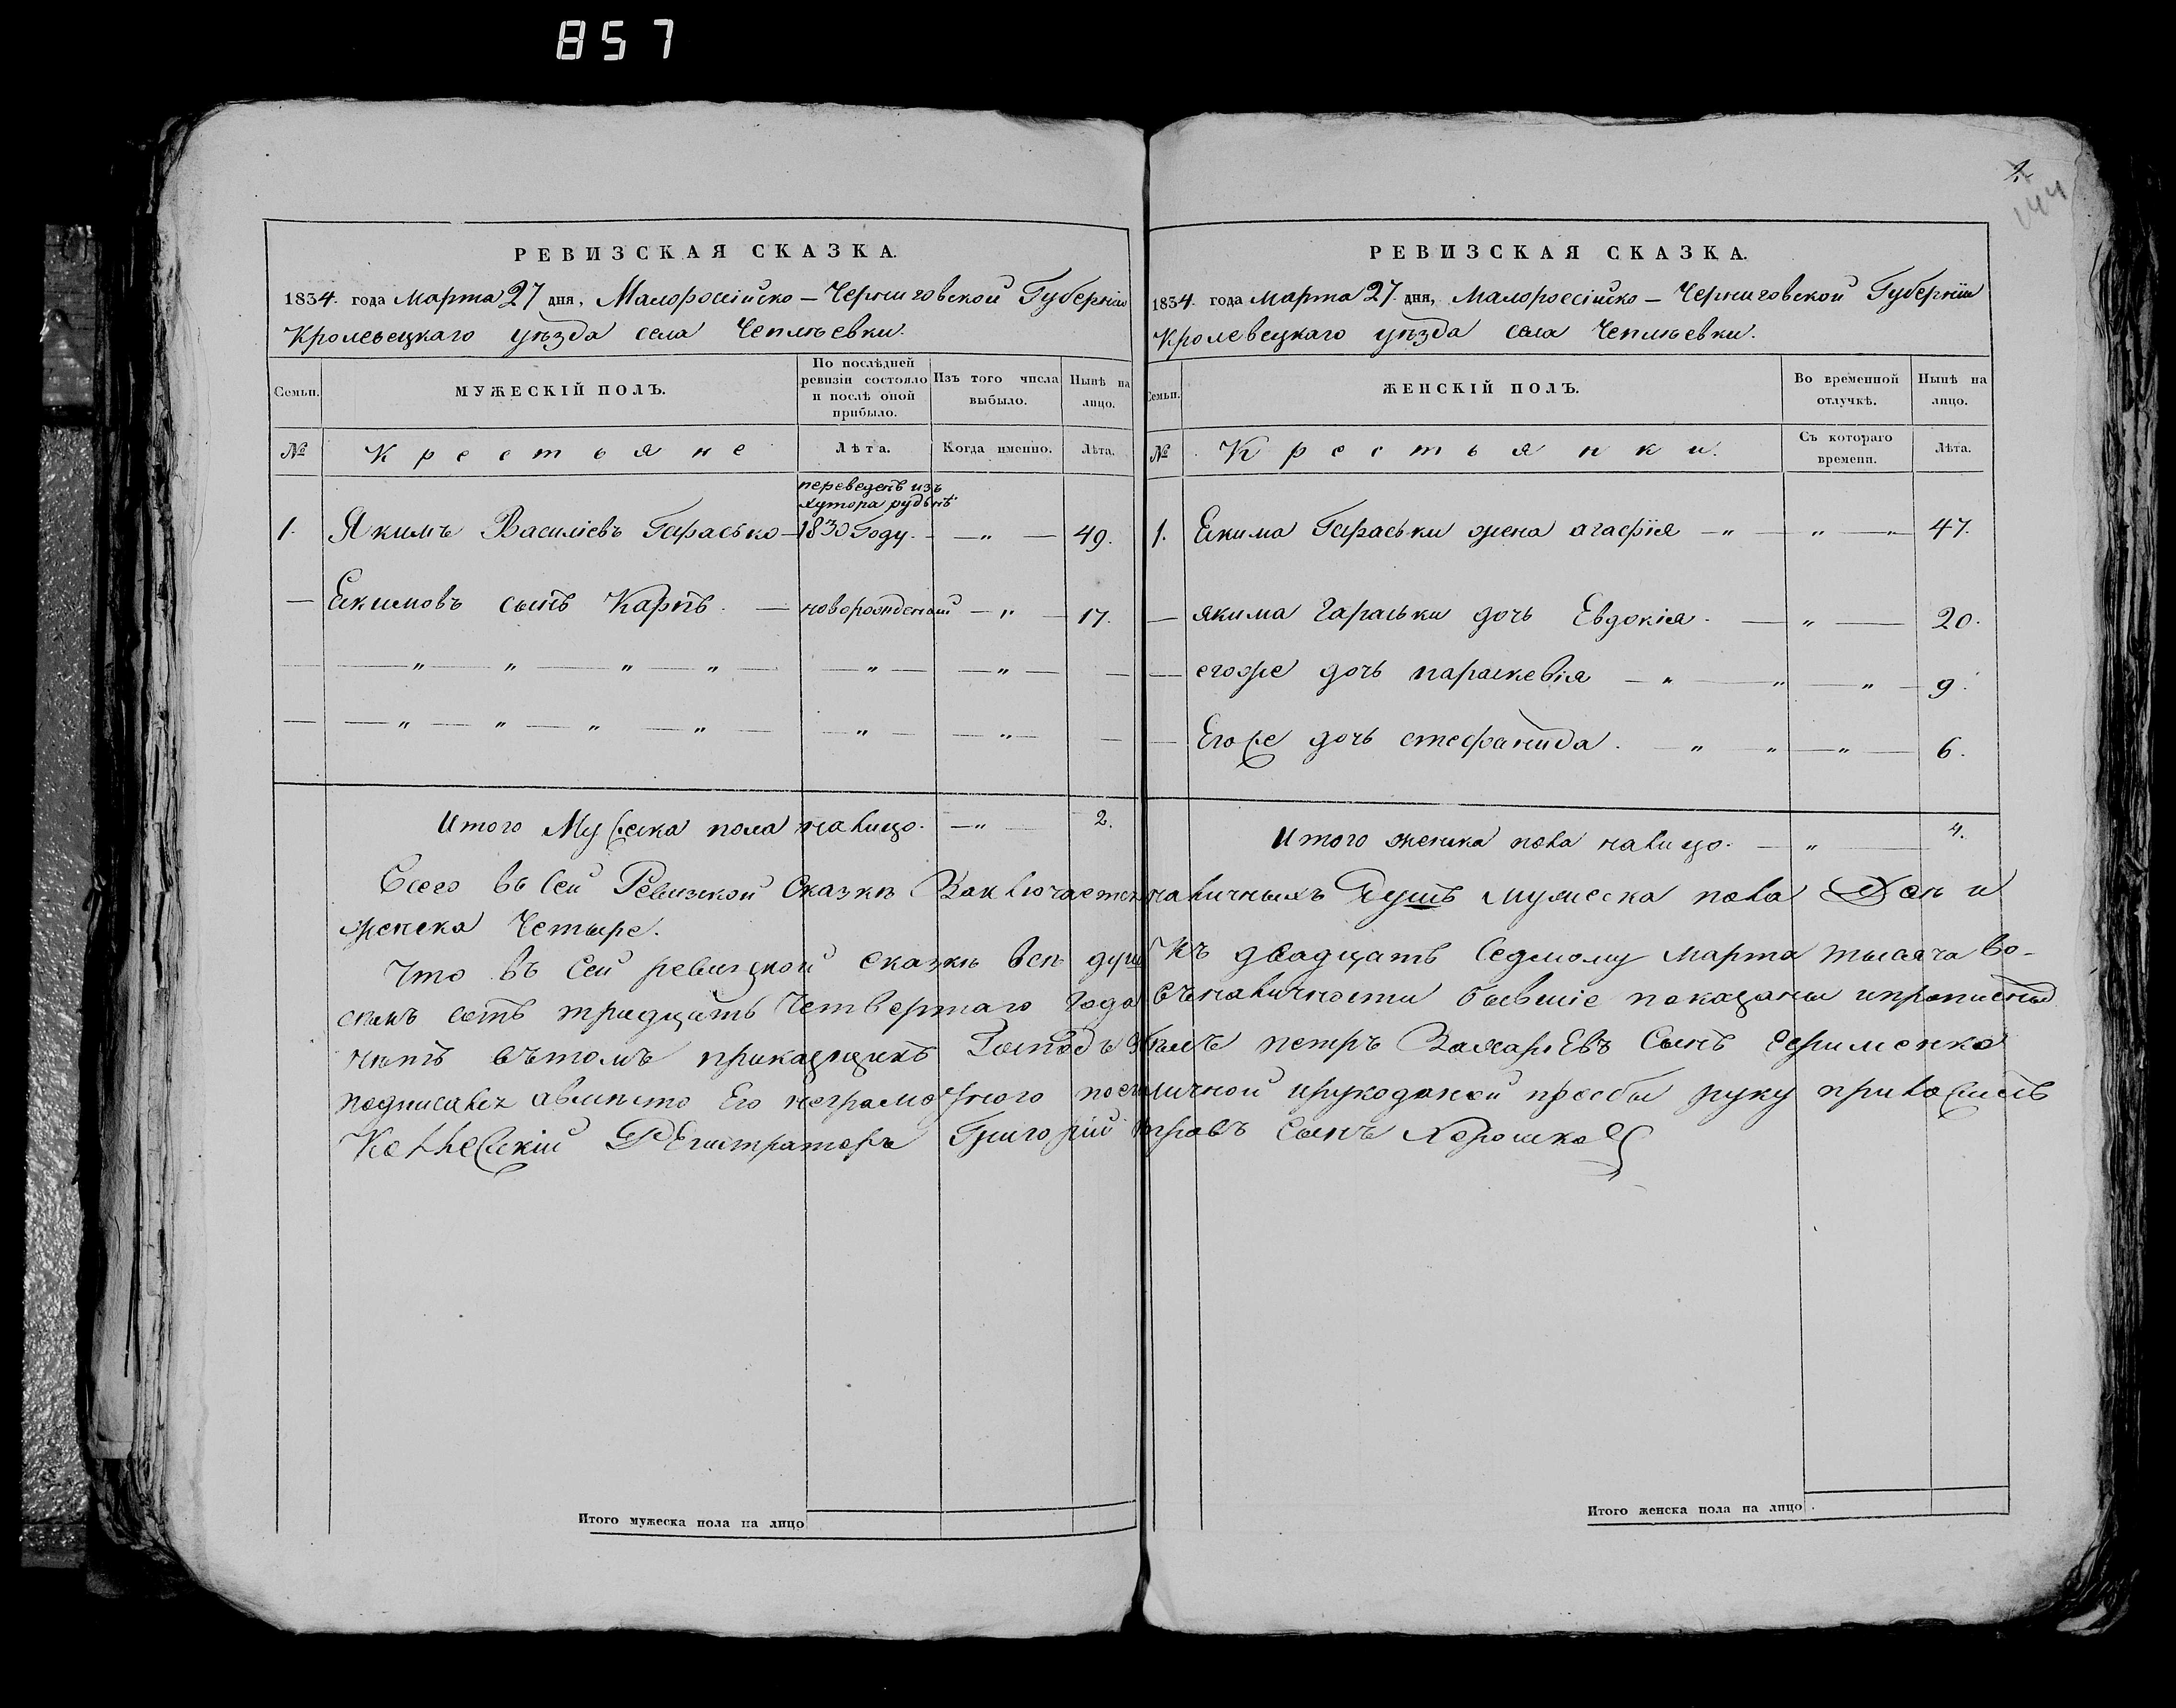 857
2
144
РЕВИЗСКАЯ СКАЗКА.
1834. года Марта 27 дня, Малороссійско — Черниговской Губерніи
Кролевецкаго уѣзда села Чеплѣевки.
Семьи.
МУЖЕСКІЙ ПОЛЪ.
По послѣдней ревизіи состояло и послѣ оной прибыло.
Изъ того числа выбыло.
Нынѣ на лицо.
№ Крестьяне Лѣта. Когда именно. Лѣта.
переведенъ изъ
хутора рудьнѣ
1. Якимъ Василіевъ Гарасько — 1830 Году. — „ — 49.
— Екимовъ сынъ Карпъ. — новорожденный — „ — 17.
Итого Мужеска пола налицо. — „ — 2.
РЕВИЗСКАЯ СКАЗКА.
1834. года Марта 27. дня, Малороссійско — Черниговской Губерніи
Кролевецкаго уѣзда села Чеплѣевки.
Семьи.
ЖЕНСКІЙ ПОЛЪ.
Во временной отлучкѣ.
Нынѣ на лицо.
№ Крестьянки. Съ котораго времени. Лѣта.
1. Екима Гараськи жена агафія — „ — „ — „ — 47.
— якима Гараськи дочь Евдокія. — „ — 20.
— егоже дочь параскевія — „ — „ — „ — 9.
— Егоже дочь стефанида. „ „ — „ — 6.
Итого женска пола налицо. — „ — 4.
Всего въ сей Ревизкой Сказкѣ Заключается наличныхъ Душъ мужеска пола Двѣ и
женска Четыре.
Что въ сей ревизкой сказкѣ всѣ души къ двадцать Седмому марта тысяча во-
семь сотъ тридцать Четвертаго Года въналичности бывшіе показаны ипрописных
нѣтъ вътомъ приказщикъ петръ Захаріевъ Сынъ Ефименко
подписался авмѣсто Его неграмотного поего личной ирукоданой прозбы руку приложилъ
Коллежскій Регистраторъ Григорій Сынъ Хорошко
Итого мужеска пола на лицо
Итого женска пола на лицо